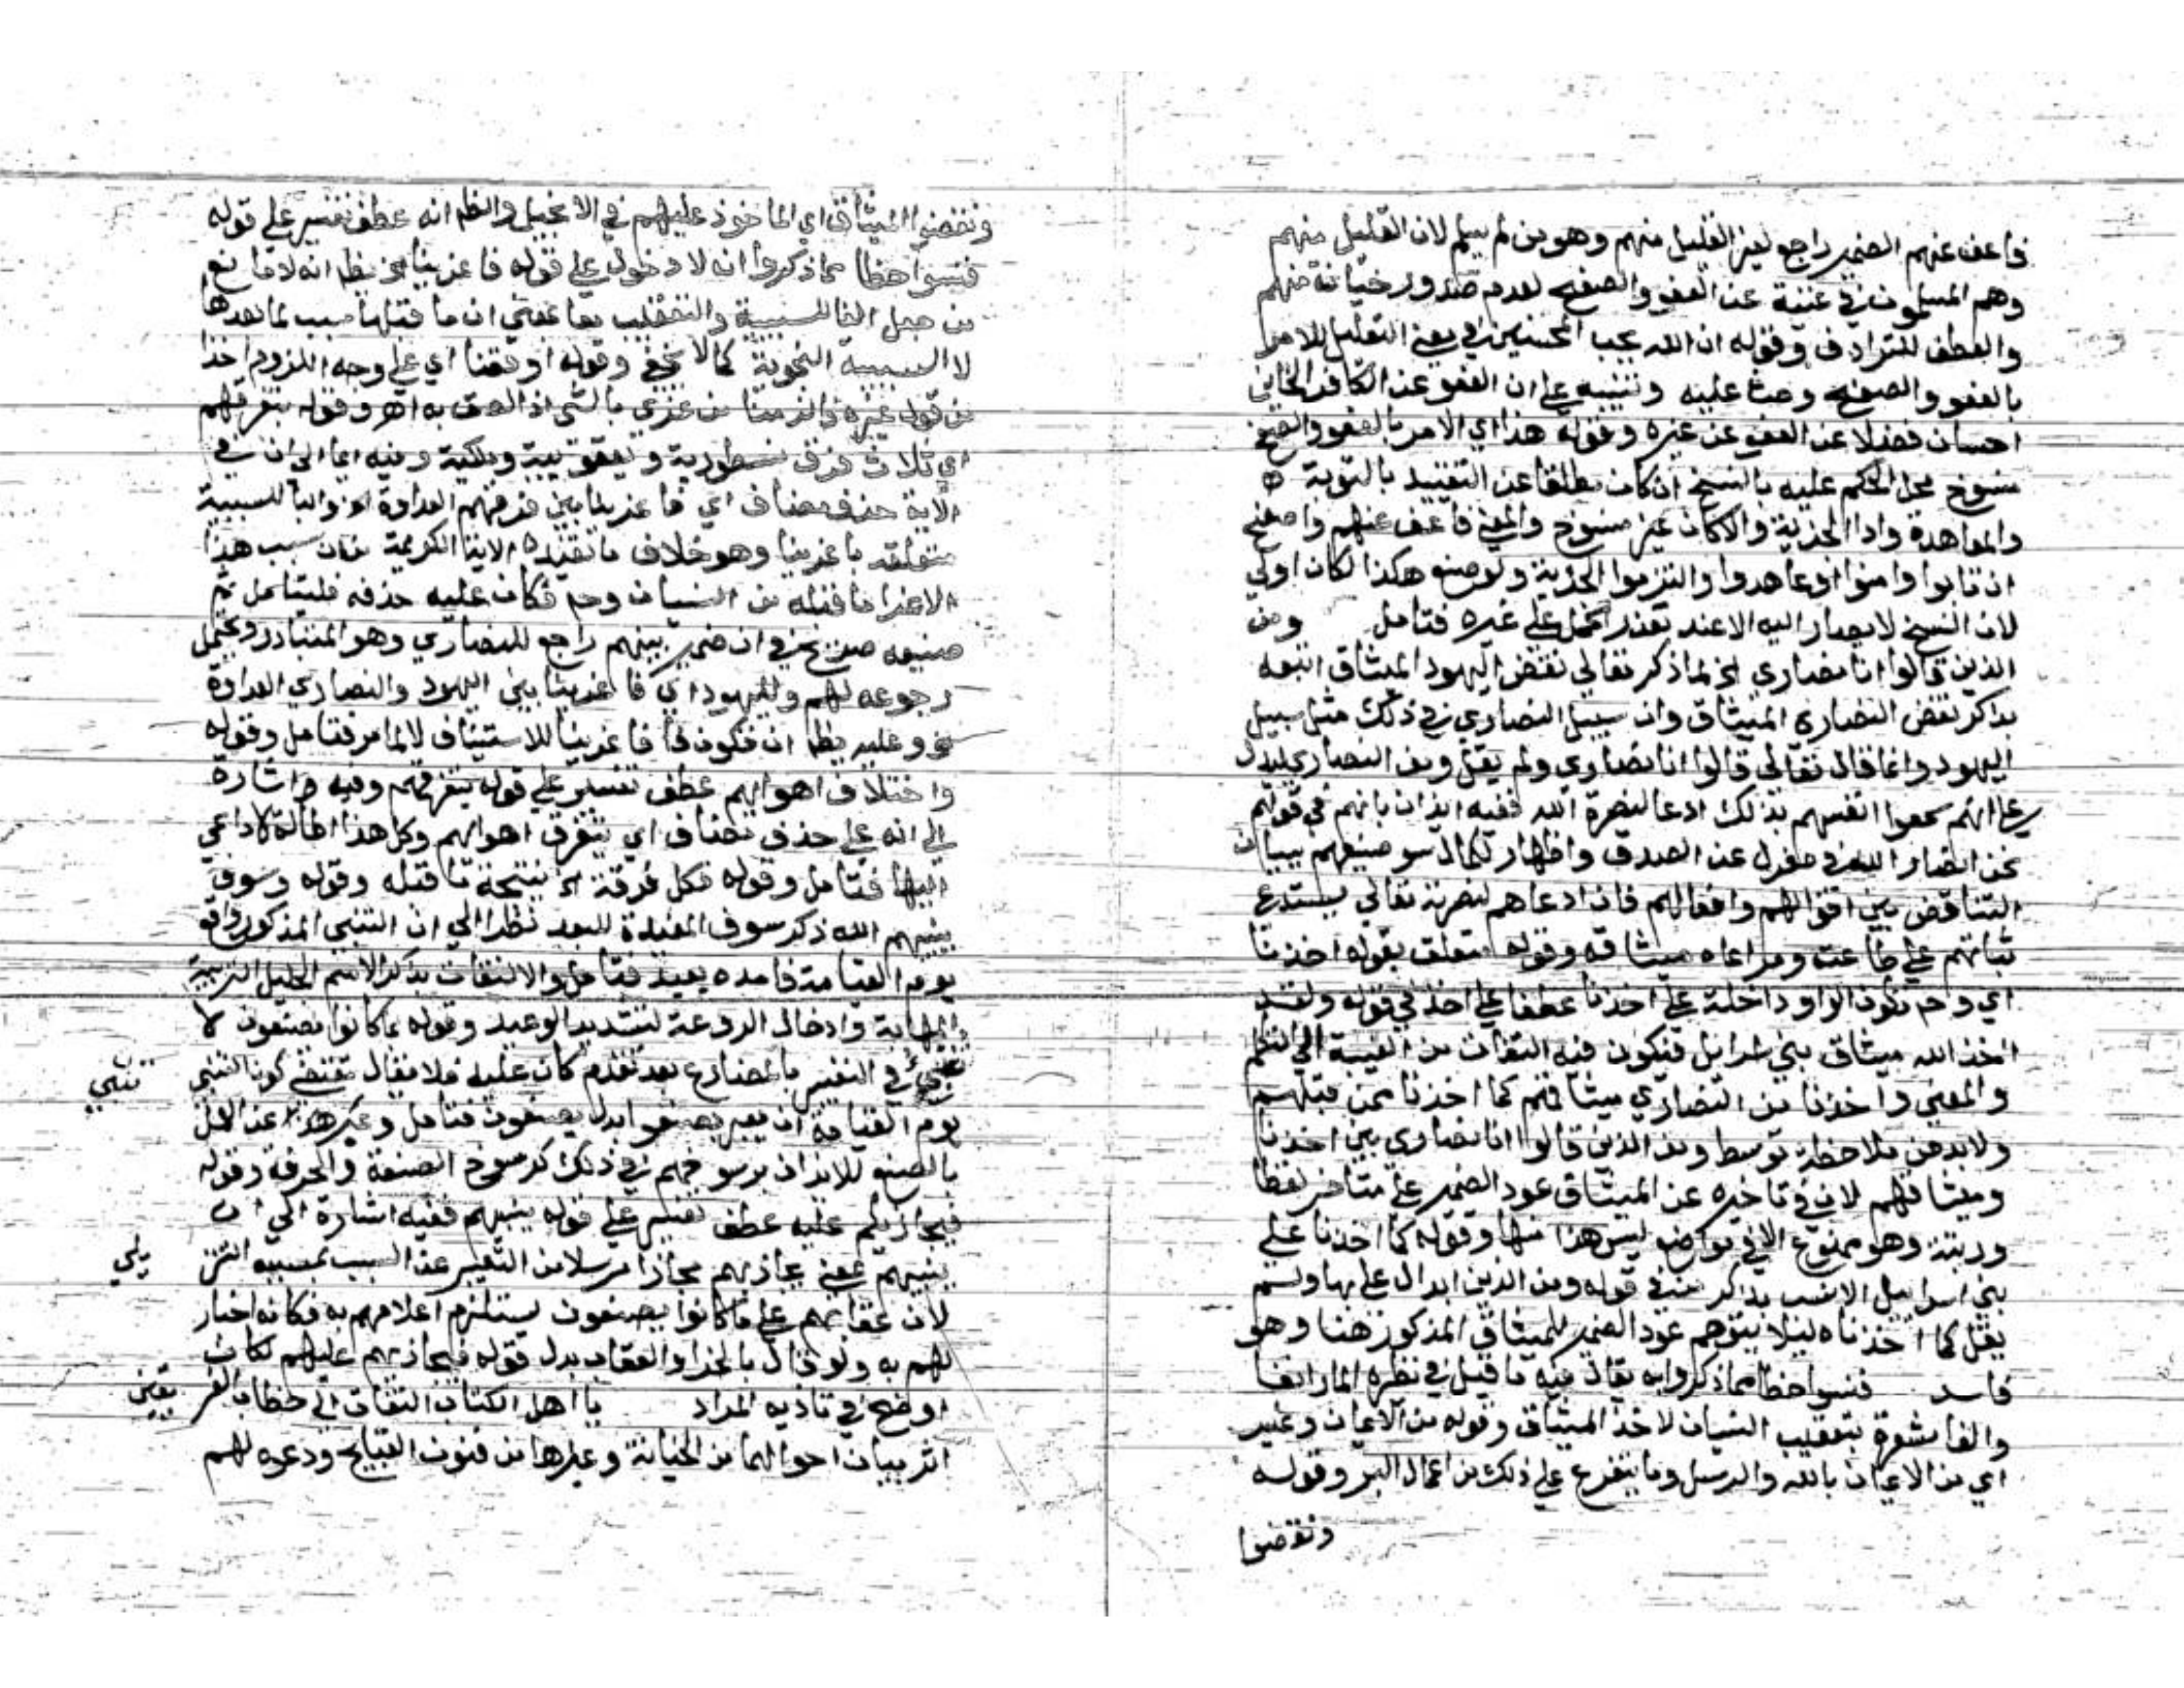 فاعف عنهم الضمير راجع لغير القليل منهم وهو من لم يسلم لان القليل منهم
وهم المسلمون في غنية عن العفو والصفح لعدم صدور خيانة منهم
والعطف للترادف وقوله ان الله يحب المحسنين في معنى التعليل للامر
بالعفو والصفح وحث عليه وتنبيه على ان العفو عن الكافر الخاين
احسان فضلا عن العفو عن غيره وقوله هذا اي الامر بالعفو والصفح
منسوخ محل الحكم عليه بالنسخ ان كان مطلقا عن التقييد بالتوبة
والمعاهدة وادا الجزية والا كان غير منسوخ والمعنى فاعف عنهم واصفح
ان تابوا وامنوا او عاهدوا والتزموا الجزية ولو صنع هكذا لكان اولى
لان النسخ لا يصار اليه الا عند تعذر الحمل على غيره فتامل ومن
الذين قالوا انا نصاري الخ لما ذكر تعالى نقض اليهود الميثاق اتبعه
بذكر نقض النصارى الميثاق وان سبيل النصاري في ذلك مثل سبيل
اليهود وانما قال تعالى قالوا انا نصاري ولم يقل ومن النصاري ليدل
على انهم سموا انفسهم بذلك ادعا لنصرة الله ففيه ايذان بانهم في قولهم
نحن انصار الله في معزل عن الصدق واظهار لكمال سو صنيعهم ببيان
التناقض بين اقوالهم وافعالهم فان ادعاهم لنصرته تعالى يستدعي
ثباتهم على طاعته ومراعاه ميثاقه وقوله متعلق بقوله اخذنا
اي وح تكون الواو داخلة على اخذنا عطفا على اخذ في قوله ولقد
اخذ الله ميثاق بني اسرايل فيكون فيه التفات من الغيبة الى التكلم
والمعنى واخذنا من النصاري ميثاقهم كما اخذنا ممن قبلهم
ولابد من ملاحظة توسط ومن الذين قالوا انا نصاري بين اخذنا
وميثاقهم لان في تاخيره عن الميثاق عود الضمير على متاخر لفظا
ورتبة وهو ممنوع الا في مواضع ليس هذا منها وقوله كما اخذنا على
بني اسراييل الانسب بذكر من في قوله ومن الذين ابدال على بها ولم
يقل كما اخذناه ليلا يتوهم عود الضمير للميثاق المذكور هنا وهو
فاسد فنسوا حظا مما ذكروا به يقال فيه ما قيل في نظيره المار انفا
والفا مشعرة بتعقيب النسيان لاخذ الميثاق وقوله من الايمان وغيره
اي من الايمان بالله والرسل وما يتفرع على ذلك من اعمال البر وقوله
ونقضوا
ونقضوا الميثاق اي الماخوذ عليهم في الانجيل والظ انه عطف تفسير على قوله
فنسوا حظا مما ذكروا انه لا دخول على قوله فاغرينا الخ يظ انه لا مانع
من جعل الفا للسببية والتعقيب معا بمعنى ان ما قبلها سبب لما بعدها
لا السببية النحوية كما لا يخفى وقوله اوقعنا اي على وجه اللزوم اخذا
من قول غيره والزمنا من غري بالشي اذا لصق به اه وقوله بتفرقهم
اي ثلاث فرق نسطورية ويعقوبية وملكية وفيه ايما الى ان في
الاية حذف مضاف اي فاغرينا بين فرقهم العداوة الخ والبا للسببية
متعلقه باغرينا وهو خلاف ما تفيده الاية الكريمة من ان سبب هذا
الاغرا ما قبله من النسيان وح فكان عليه حذفه فليتامل ثم
صنيعه صريح في ان ضمير بينهم راجع للنصاري وهو المتبادر ويحتمل
رجوعه لهم ولليهود اي فاغرينا بين اليهود والنصاري العداوة
الخ وعليه يظ ان تكون فا فاغرينا للاستيناف لا لما مر فتامل وقوله
واختلاف اهوايهم عطف تفسير على قوله بتفرقهم وفيه اشارة
الى انه على حذف مضاف اي بتفرق اهوايهم وكل هذا اطالة لا داعي
اليها فتامل وقوله فكل فرقة الخ نتيجة ما قبله وقوله وسوف
ينبيهم الله ذكر سوف المفيدة للبعد نظرا الى ان التنبي المذكور واقع
يوم القيامة فامده بعيد فتامل والالتفات بذكر الاسم الجليل لتربية
المهابة وادخال الروعة لتشديد الوعيد وقوله بما كانوا يصنعون لا
يخفى في التعبير بالمضارع بعد تقدم كان عليه فلا يقال مقتضى كون التنبي
تنبي
يوم القيامة ان يعبر بصنعوا بدل يصنعون فتامل وعبر هنا عن العمل
بالصنع للايذان برسوخهم في ذلك كرسوخ الصنعة والحرفة وقوله
فيجازيهم عليه عطف تفسير على قوله ينبيهم ففيه اشارة الى ان
ينبيهم بمعنى يجازيهم مجازا مرسلا من التعبير عن السبب بمسببه
لان عقابهم على ما كانوا يصنعون يستلزم اعلامهم به فكانه اخبار
لهم به ولو قال بالجزا والعقاب بدل قوله فيجازيهم عليهم لكان
اوضح في تاديه المراد يا اهل الكتاب التفات الى خطاب
اثر بيان احوالهما من الخيانة وغيرها من فنون القبايح ودعوه لهم